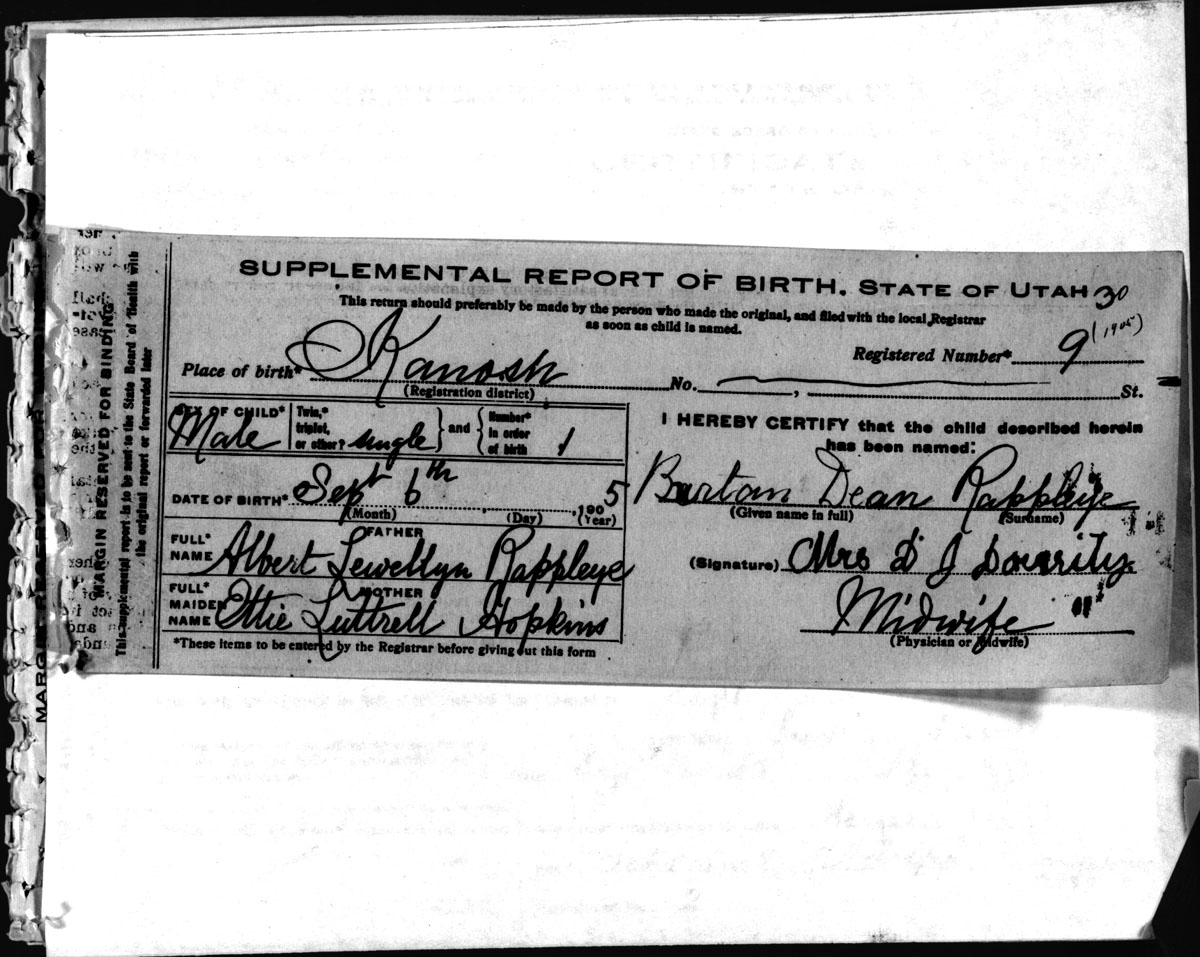 SUPPLEMENTAL REPORT OF BIRTH. STATE OF UTAH 30
This return should preferably be made by the person who made the original, and filed with the local Registrar
as soon as child is named.
Registered Number* 9 (1905)
Place of birth* Kanosh No. , St.
(Registration district)
SEX OF CHILD* Male
Twin,* triplet, or other? single and Number* in order of birth 1
DATE OF BIRTH* Sept 6th 1905
(Month) (Day) (Year)
FATHER
FULL* NAME Albert Lewellyn Rappleye
MOTHER
FULL* MAIDEN NAME Ottie Luttrell Hopkins
*These items to be entered by the Registrar before giving out this form
I HEREBY CERTIFY that the child described herein
has been named:
Burton Dean Rappleye
(Given name in full) (Surname)
(Signature) Mrs D J Dorrity
Midwife
(Physician or Midwife)
MARGIN RESERVED FOR BINDING
This supplemental report is to be sent to the State Board of Health with
the original report or forwarded later